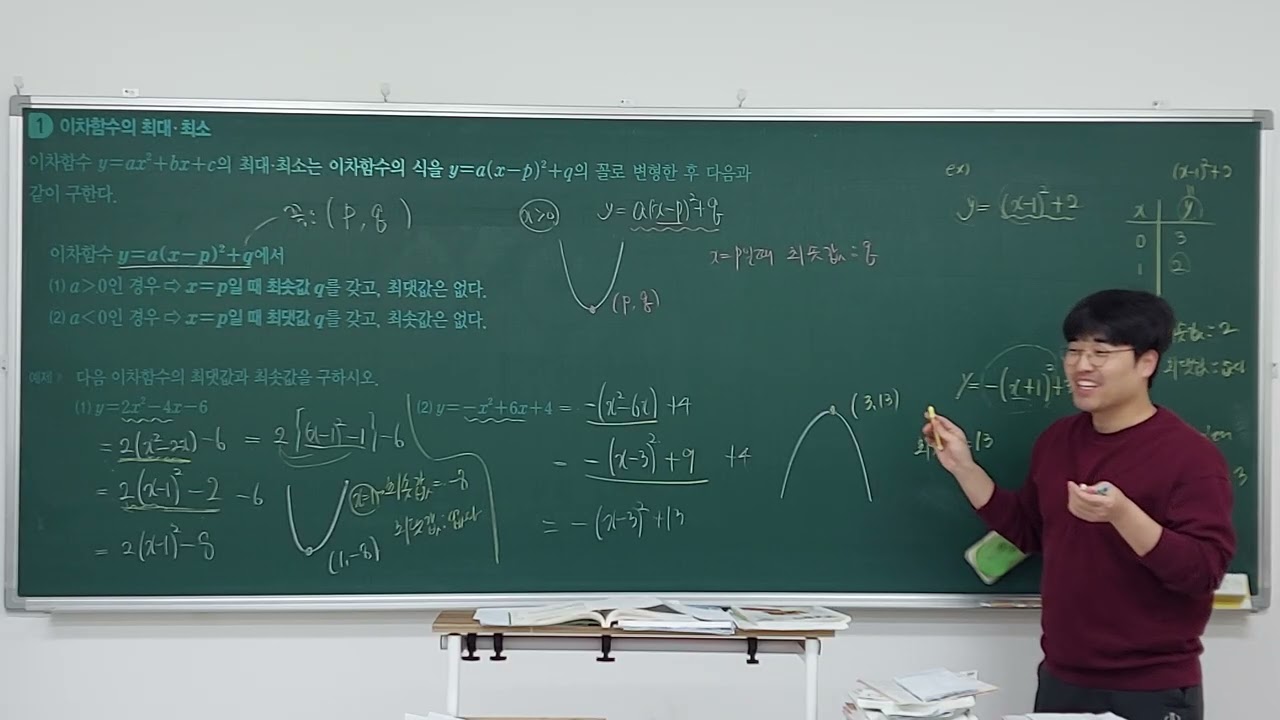 1 이차함수의 최대·최소
이차함수 y=ax²+bx+c의 최대·최소는 이차함수의 식을 y=a(x-p)²+q의 꼴로 변형한 후 다음과
같이 구한다.
꼭: (p, q)
이차함수 y=a(x-p)²+q에서
(1) a>0인 경우 ⇨ x=p일 때 최솟값 q를 갖고, 최댓값은 없다.
(2) a<0인 경우 ⇨ x=p일 때 최댓값 q를 갖고, 최솟값은 없다.
y=a(x-p)²+q
x=p일때 최솟값=q
(p, q)
예제
다음 이차함수의 최댓값과 최솟값을 구하시오.
(1) y=2x²-4x-6
=2(x²-2x)-6 = 2[(x-1)²-1]-6
=2(x-1)²-2 -6
=2(x-1)²-8
(1,-8)
x=1 최솟값=-8
최댓값:없다
(2) y=-x²+6x+4 = -(x²-6x)+4
= -(x-3)²+9 +4
= -(x-3)²+13
(3,13)
=13
ex)
y=(x-1)²+2
(x-1)²+2
x y
0 3
1 2
값=2
최댓값=
y=-(x+1)²+3
3